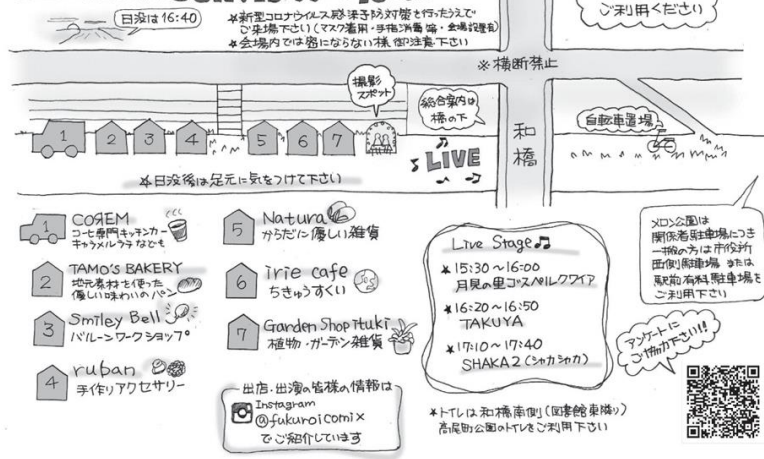 日没は16:40
★新型コロナウイルス感染予防対策を行ったうえで
ご来場下さい(マスク着用・手指消毒等・会場設置有)
★会場内では密にならない様御注意下さい
ご利用ください
※横断禁止
撮影
スポット
総合案内は
橋の下
自転車置場
和橋
1
2
3
4
5
6
7
LIVE
☆日没後は足元に気をつけて下さい
1 COЯEM
コーヒー専門キッチンカー
キャラメルラテなども
2 TAMO'S BAKERY
地元素材を使った
優しい味わいのパン
3 Smiley Bell
バルーンワークショップ
4 ruban
手作りアクセサリー
5 Natura
からだに優しい雑貨
6 irie cafe
ちきゅうすくい
7 Garden Shop ituki
植物・ガーデン雑貨
出店・出演の皆様の情報は
Instagram
@fukuroicomix
でご紹介しています
Live Stage♫
★15:30~16:00
月見の里ゴスペルクワイア
★16:20~16:50
TAKUYA
★17:10~17:40
SHAKA2(シャカシャカ)
★トイレは和橋南側(図書館東隣り)
高尾町公園のトイレをご利用下さい
メロン公園は
関係者駐車場につき
一般の方は市役所
西側駐車場または
駅前有料駐車場を
ご利用下さい
アンケートに
ご協力下さい!!